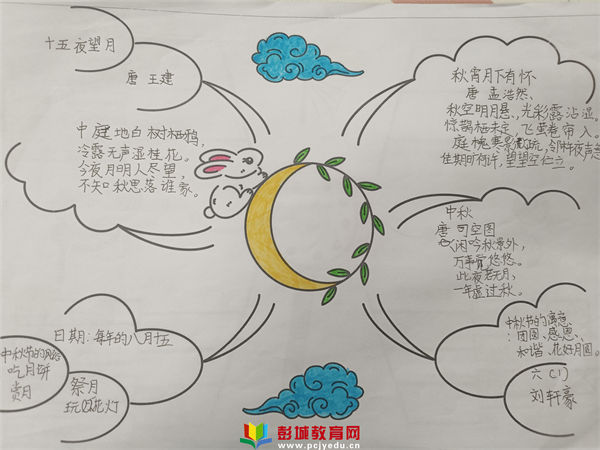 十五夜望月
唐 王建
中庭地白树栖鸦,
冷露无声湿桂花。
今夜月明人尽望,
不知秋思落谁家。
秋宵月下有怀
唐 孟浩然、
秋空明月悬、光彩露沾湿。
惊鹊栖未定、飞萤卷帘入。
庭槐寒影疏,邻杵夜声急
佳期旷何许,望望空伫立。
中秋
唐 司空图
闲吟秋景外,
万事觉悠悠。
此夜若无月,
一年虚过秋。
日期:每年的八月十五
中秋节的风俗
吃月饼
赏月
祭月
玩花灯
中秋节的寓意
:团圆、感恩、
和谐、花好月圆。
六(1)
刘轩豪
彭城教育网
www.pcjyedu.cn